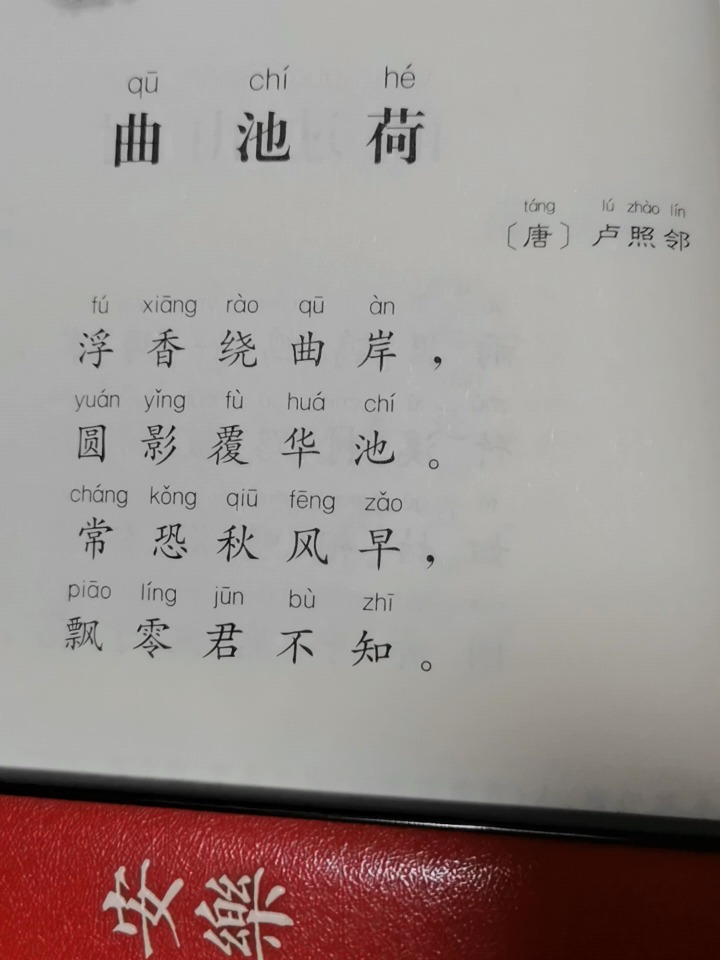 qū chí hé
曲池荷
táng lú zhào lín
〔唐〕卢照邻
fú xiāng rào qū àn
浮香绕曲岸，
yuán yǐng fù huá chí
圆影覆华池。
cháng kǒng qiū fēng zǎo
常恐秋风早，
piāo líng jūn bù zhī
飘零君不知。
安樂